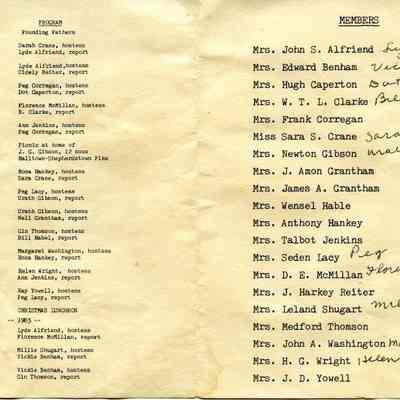 PROGRAM
Founding Fathers
Sarah Crane, hostess
Lyde Alfriend, report
Lyde Alfriend, hostess
Cicely Reiter, report
Peg Corregan, hostess
Dot Caperton, report
Florence McMillan, hostess
B. Clarke, report
Ann Jenkins, hostess
Peg Corregan, report
Picnic at home of
J. G. Gibson, 12 noon
Halltown-Shepherdstown Pike
Rosa Hankey, hostess
Sara Crane, report
Peg Lacy, hostess
Urath Gibson, report
Urath Gibson, hostess
Nell Grantham, report
Gin Thomson, hostess
Bill Habel, report
Margaret Washington, hostess
Rosa Hankey, report
Helen Wright, hostess
Ann Jenkins, report
Kay Yowell, hostess
Peg Lacy, report
CHRISTMAS LUNCHEON
-- 1985 --
Lyde Alfriend, hostess
Florence McMillan, report
Millie Shugart, hostess
Vickie Benham, report
Vickie Benham, hostess
Gin Thomson, report
MEMBERS
Mrs. John S. Alfriend
Mrs. Edward Benham
Mrs. Hugh Caperton
Mrs. W. T. L. Clarke
Mrs. Frank Corregan
Miss Sara S. Crane Sara
Mrs. Newton Gibson
Mrs. J. Amon Grantham
Mrs. James A. Grantham
Mrs. Wensel Hable
Mrs. Anthony Hankey
Mrs. Talbot Jenkins
Mrs. Seden Lacy Peg
Mrs. D. E. McMillan
Mrs. J. Harkey Reitor
Mrs. Leland Shugart
Mrs. Medford Thomson
Mrs. John A. Washington
Mrs. H. G. Wright Helen
Mrs. J. D. Yowell